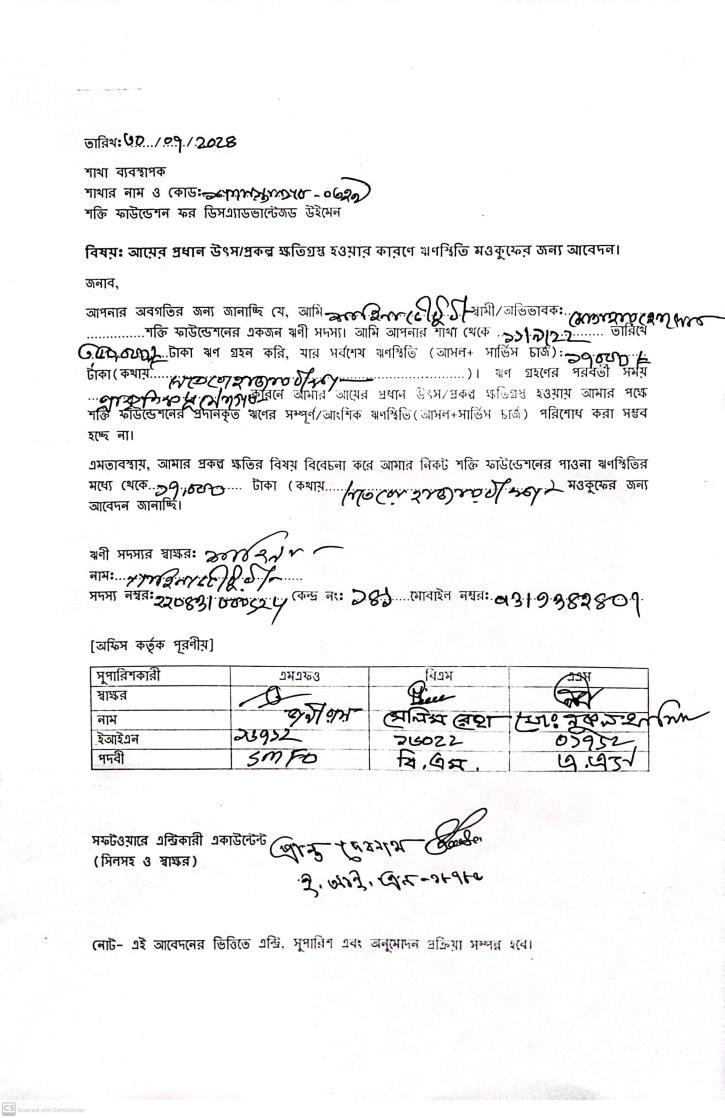 তারিখ: ৩০/০৭/2024
শাখা ব্যবস্থাপক
শাখার নাম ও কোড:
শক্তি ফাউন্ডেশন ফর ডিসএ্যাডভান্টেজড উইমেন
বিষয়: আয়ের প্রধান উৎস/প্রকল্প ক্ষতিগ্রস্থ হওয়ার কারণে ঋণস্থিতি মওকুফের জন্য আবেদন।
জনাব,
আপনার অবগতির জন্য জানাচ্ছি যে, আমি শাহিনা চৌধুরী স্বামী/অভিভাবক:
শক্তি ফাউন্ডেশনের একজন ঋণী সদস্য। আমি আপনার শাখা থেকে তারিখে
টাকা ঋণ গ্রহন করি, যার সর্বশেষ ঋণস্থিতি (আসল+ সার্ভিস চার্জ): ১৭০০০/=
টাকা(কথায় সতেরো হাজার টাকা)। ঋণ গ্রহণের পরবর্তী সময়
প্রাকৃতিক কারনে আমার আয়ের প্রধান উৎস/প্রকল্প ক্ষতিগ্রস্থ হওয়ায় আমার পক্ষে
শক্তি ফাউন্ডেশনের প্রদানকৃত ঋণের সম্পূর্ণ/আংশিক ঋণস্থিতি(আসল+সার্ভিস চার্জ) পরিশোধ করা সম্ভব
হচ্ছে না।
এমতাবস্থায়, আমার প্রকল্প ক্ষতির বিষয় বিবেচনা করে আমার নিকট শক্তি ফাউন্ডেশনের পাওনা ঋণস্থিতির
মধ্যে থেকে ১৭,০০০ টাকা (কথায় সতেরো হাজার টাকা মওকুফের জন্য
আবেদন জানাচ্ছি।
ঋণী সদস্যর স্বাক্ষর: শাহিনা
নাম: শাহিনা চৌধুরী
সদস্য নম্বর: কেন্দ্র নং: মোবাইল নম্বর:
[অফিস কর্তৃক পূরণীয়]
সুপারিশকারী এমএফও বিএম এএম
স্বাক্ষর
নাম
ইআইএন ১৬৭১২ ১৬০২২ ০১৭১২
পদবী SMFO বি.এম. এ.এম
সফটওয়ারে এন্ট্রিকারী একাউন্টেন্ট প্রান্ত দেবনাথ
(সিলসহ ও স্বাক্ষর)
ই.আই.এন-
নোট- এই আবেদনের ভিত্তিতে এন্ট্রি, সুপারিশ এবং অনুমোদন প্রক্রিয়া সম্পন্ন হবে।
CS Scanned with CamScanner